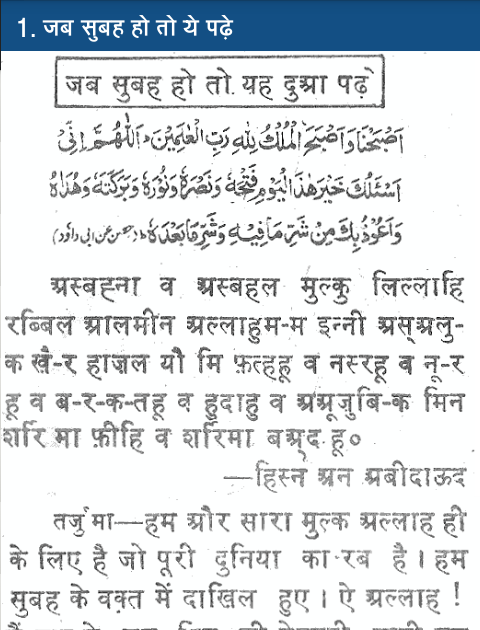 1. जब सुबह हो तो ये पढ़े
जब सुबह हो तो यह दुआ पढ़े
اَصْبَحْنَا وَاَصْبَحَ الْمُلْكُ لِلّٰهِ رَبِّ الْعٰلَمِيْنَ اَللّٰهُمَّ اِنِّىْ
اَسْئَلُكَ خَيْرَ هٰذَا الْيَوْمِ فَتْحَهٗ وَنَصْرَهٗ وَنُوْرَهٗ وَبَرَكَتَهٗ وَهُدَاهُ
وَاَعُوْذُ بِكَ مِنْ شَرِّ مَا فِيْهِ وَشَرِّ مَا بَعْدَهٗ (حصن عن ابی داود)
अस्बह्ना व अस्बहल मुल्कु लिल्लाहि
रब्बिल आलमीन अल्लाहुम-म इन्नी अस्अलु-
क खै-र हाज़ल यौ मि फ़त्हहू व नस्रहू व नू-र
हू व ब-र-क-तहू व हुदाहु व अअूज़ुबि-क मिन
शर्रि मा फ़ीहि व शर्रिमा बअ्द हू०
—हिस्न अन अबीदाऊद
तर्जुमा—हम और सारा मुल्क अल्लाह ही
के लिए है जो पूरी दुनिया का रब है । हम
सुबह के वक़्त में दाखिल हुए । ऐ अल्लाह !